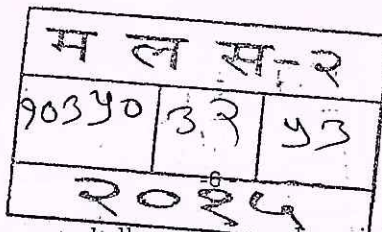 म ल स-२
१०३५० ३२ ५३
-6
२०१५